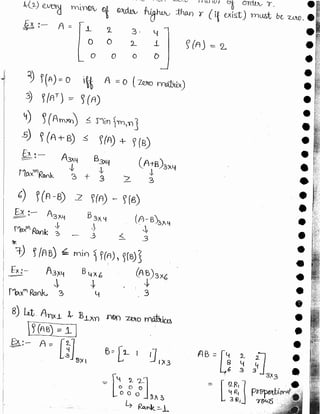 of order r.
(2) every minor of order higher than r (if exist) must be zero.
Ex :- A = [ 1 2 3 4
0 0 2 1
0 0 0 0 ] ρ(A) = 2
2) ρ(A) = 0 iff A = 0 (zero matrix)
3) ρ(Aᵀ) = ρ(A)
4) ρ(Am×n) ≤ Min {m,n}
5) ρ(A+B) ≤ ρ(A) + ρ(B)
Ex :- A3×4 B3×4 (A+B)3×4
↓ ↓ ↓
Maxᵐ Rank 3 + 3 ≥ 3
6) ρ(A-B) ≥ ρ(A) - ρ(B)
Ex :- A3×4 B3×4 (A-B)3×4
↓ ↓ ↓
Maxᵐ Rank 3 - 3 ≤ 3
* 7) ρ(AB) ≤ min {ρ(A), ρ(B)}
Ex:- A3×4 B4×6 (AB)3×6
↓ ↓ ↓
Maxᵐ Rank 3 4 3
8) Let An×1 & B1×n non zero matrices
ρ(AB) = 1
Ex:- A = [ 2
4
3 ]3×1 B = [2 1 1]1×3 AB = [ 4 2 2
8 4 4
6 3 3 ]3×3
= [ 4 2 2
0 0 0
0 0 0 ]3×3 = [ 2R1
4R1
3R1 ] proportional rows
↳ Rank = 1